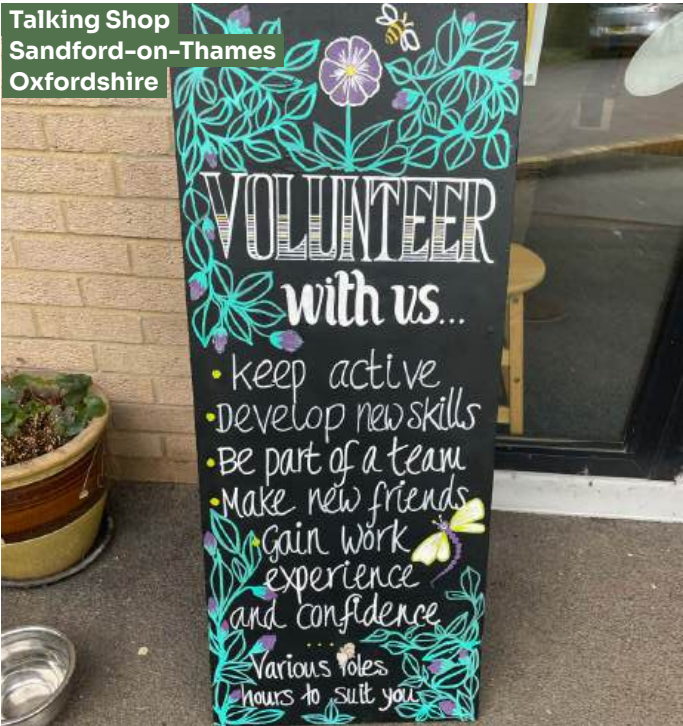 Talking Shop
Sandford-on-Thames
Oxfordshire
VOLUNTEER
with us...
• keep active
• Develop new skills
• Be part of a team
• Make new friends
• Gain work
experience
and confidence
...
Various roles
hours to suit you